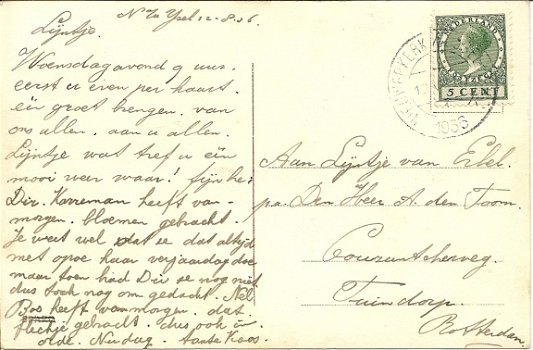 N 7a Ysel 12-8-36.
Lijntje.
Woensdagavond 9 uur.
eerst u even per kaart.
één groet brengen. van
ons allen. aan u allen.
Lijntje wat tref u één
mooi weer waar! fijn he!
Dir. Karreman heeft van-
morgen. bloemen gebracht.
Je weet wel dat ze dat altijd
met opoe haar verjaardag doe
maar toen had Dir ze nog niet
dus toch nog om gedacht. Nel
Bos heeft vanmorgen. dat
gebracht. dus ook in
orde. Nu dag. tante Koos.
NEDERLAND
5 CENT
NIEUWERKERK
1936
Aan Lijntje van Erkel.
p.a. Den Heer A. den Toom.
Courantscheweg.
Tuindorp.
Rotterdam